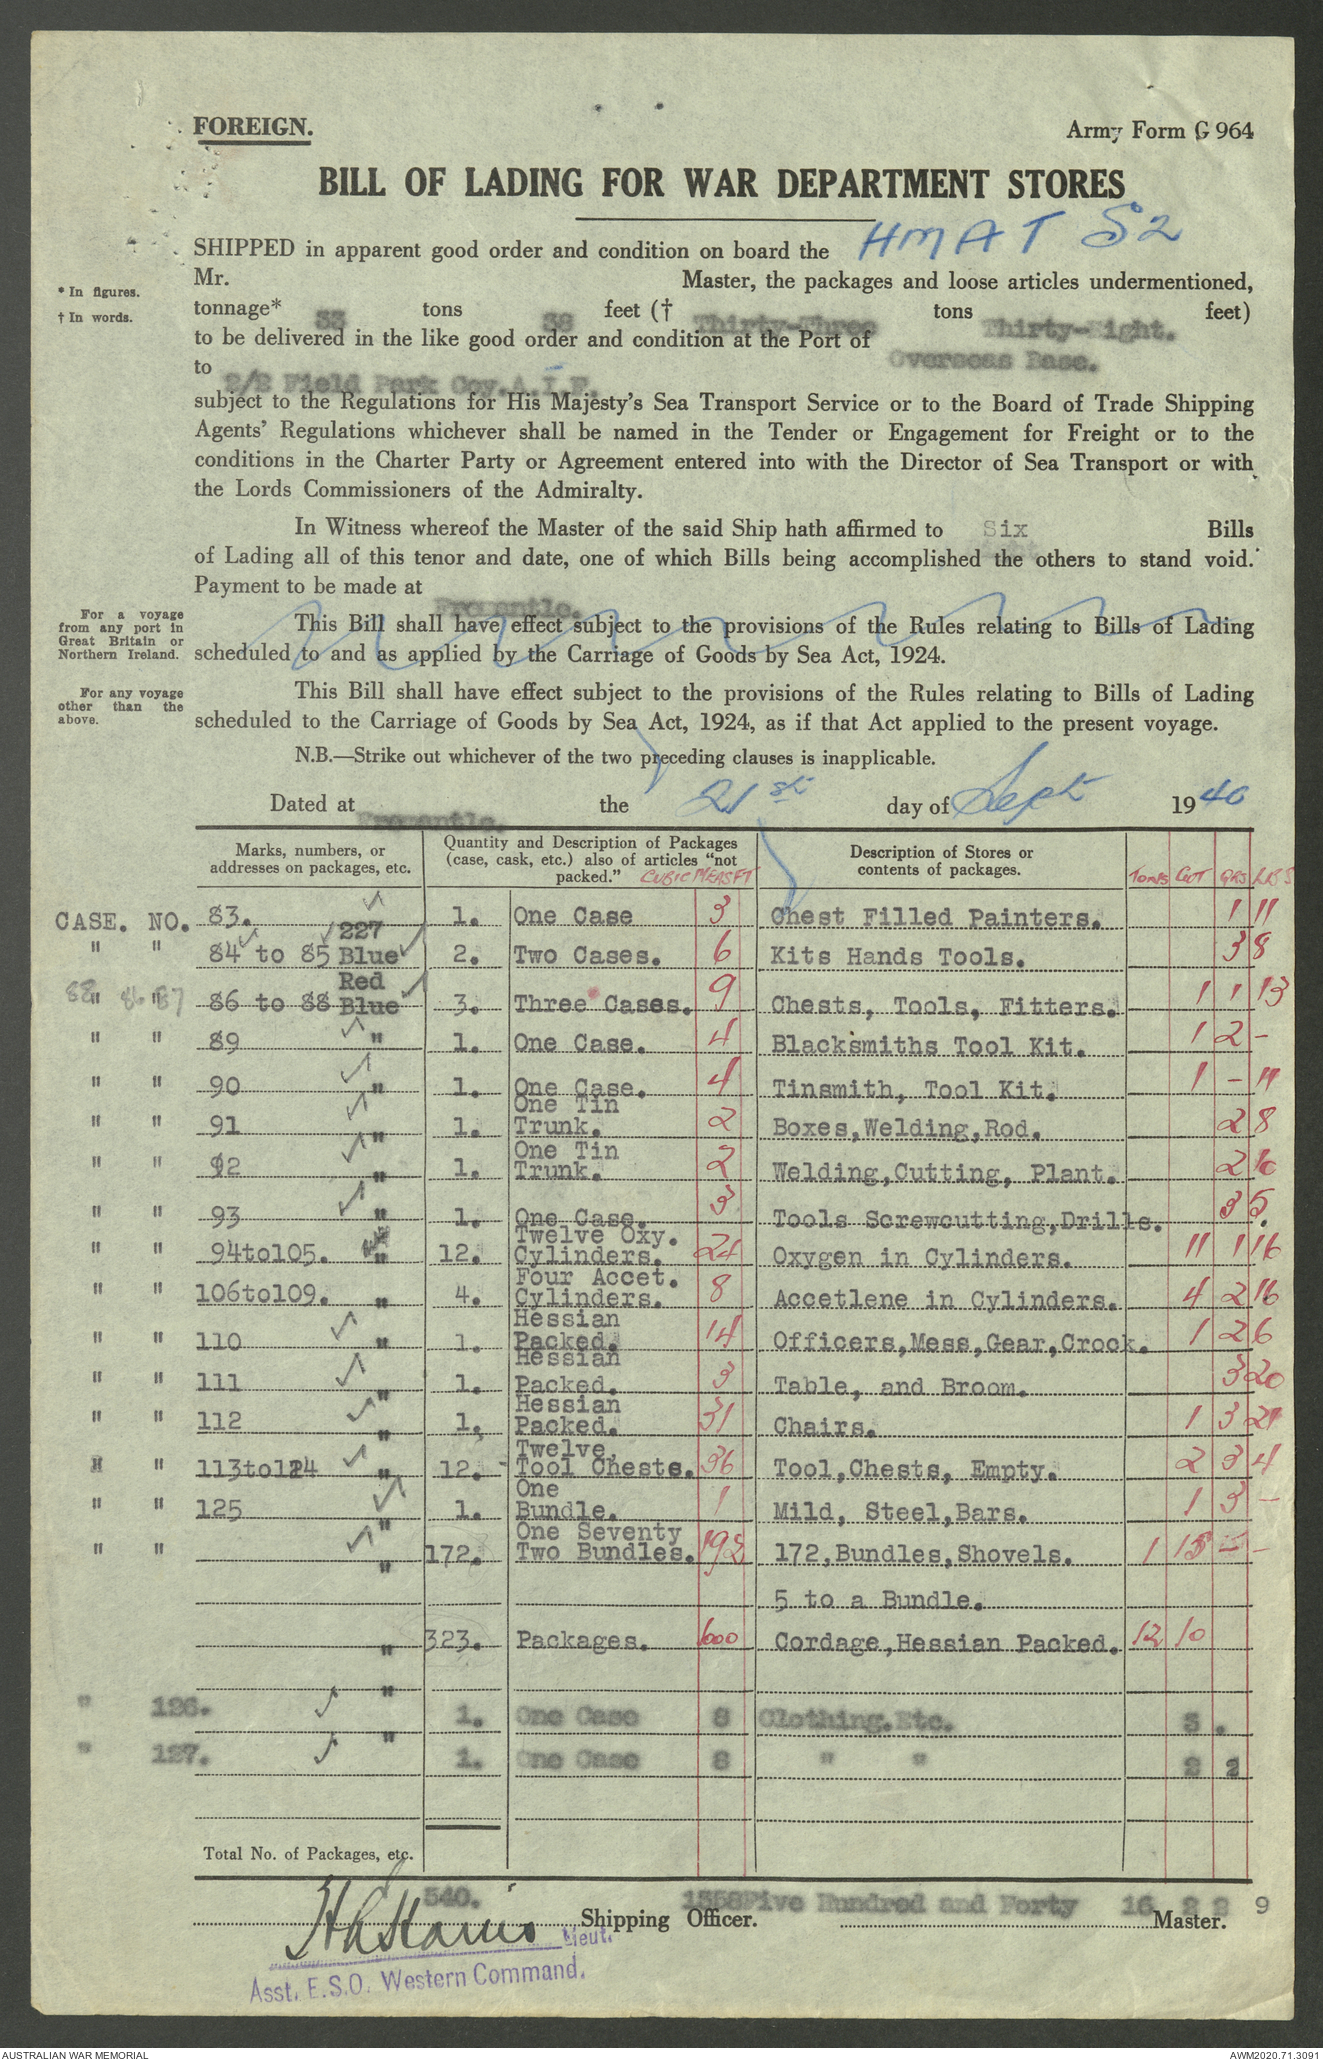 FOREIGN.
Army Form G 964
BILL OF LADING FOR WAR DEPARTMENT STORES
SHIPPED in apparent good order and condition on board the HMAT S2
Mr. Master, the packages and loose articles undermentioned,
* In figures.
tonnage* 33 tons 38 feet († Thirty-Three tons Thirty-Eight. feet)
† In words.
to be delivered in the like good order and condition at the Port of Overseas Base.
to 2/2 Field Park Coy.A.I.F.
subject to the Regulations for His Majesty's Sea Transport Service or to the Board of Trade Shipping
Agents' Regulations whichever shall be named in the Tender or Engagement for Freight or to the
conditions in the Charter Party or Agreement entered into with the Director of Sea Transport or with
the Lords Commissioners of the Admiralty.
In Witness whereof the Master of the said Ship hath affirmed to Six Bills
of Lading all of this tenor and date, one of which Bills being accomplished the others to stand void.
Payment to be made at Fremantle.
For a voyage
from any port in
Great Britain or
Northern Ireland.
This Bill shall have effect subject to the provisions of the Rules relating to Bills of Lading
scheduled to and as applied by the Carriage of Goods by Sea Act, 1924.
For any voyage
other than the
above.
This Bill shall have effect subject to the provisions of the Rules relating to Bills of Lading
scheduled to the Carriage of Goods by Sea Act, 1924, as if that Act applied to the present voyage.
N.B.—Strike out whichever of the two preceding clauses is inapplicable.
Dated at Fremantle. the 21st day of Sept 1940
Marks, numbers, or
addresses on packages, etc.
Quantity and Description of Packages
(case, cask, etc.) also of articles "not
packed." CUBIC MEAS FT
Description of Stores or
contents of packages.
TONS CWT QRS LBS
CASE. NO. 83. 1. One Case 3 Chest Filled Painters. 1 11
227
" " 84 to 85 Blue 2. Two Cases. 6 Kits Hands Tools. 3 8
Red
88 " 86 " 87 86 to 88 Blue 3. Three Cases. 9 Chests, Tools, Fitters. 1 1 13
" " 89 " 1. One Case. 4 Blacksmiths Tool Kit. 1 2 -
" " 90 " 1. One Case. 4 Tinsmith, Tool Kit. 1 - 11
One Tin
" " 91 " 1. Trunk. 2 Boxes,Welding,Rod. 2 8
One Tin
" " 92 " 1. Trunk. 2 Welding,Cutting, Plant. 2 10
" " 93 " 1. One Case. 3 Tools Screwcutting,Drills. 3 5
Twelve Oxy.
" " 94to105. " 12. Cylinders. 24 Oxygen in Cylinders. 11 1 16
Four Accet.
" " 106to109. " 4. Cylinders. 8 Accetlene in Cylinders. 4 2 16
Hessian
" " 110 " 1. Packed. 14 Officers,Mess,Gear,Crock. 1 2 6
Hessian
" " 111 " 1. Packed. 3 Table, and Broom. 3 20
Hessian
" " 112 " 1. Packed. 31 Chairs. 1 3 21
Twelve,
" " 113to124 " 12. - Tool Chests. 36 Tool,Chests, Empty. 2 3 4
One
" " 125 " 1. Bundle. 1 Mild, Steel,Bars. 1 3 -
One Seventy
" " " 172. Two Bundles. 192 172,Bundles,Shovels. 1 15 - -
5 to a Bundle.
" 323. Packages. 1000 Cordage,Hessian Packed. 12 10
" 126. " 1. One Case 8 Clothing.Etc. 3 .
" 127. " 1. One Case 8 " " 2 2
Total No. of Packages, etc.
540. 1358 Five Hundred and Forty 16 2 2 9
Shipping Officer. Master.
Lieut.
Asst. E.S.O. Western Command.
AUSTRALIAN WAR MEMORIAL
AWM2020.71.3091